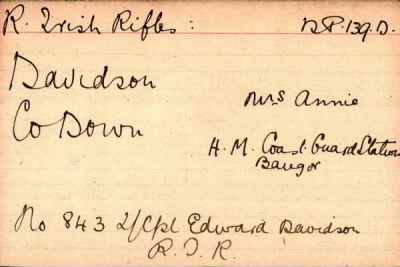 R. Irish Rifles: BP.139.D.
Davidson
Mrs Annie
Co Down
H. M. Coast Guard Station
Bangor
No 843 L/Cpl Edward Davidson
R. I. R.